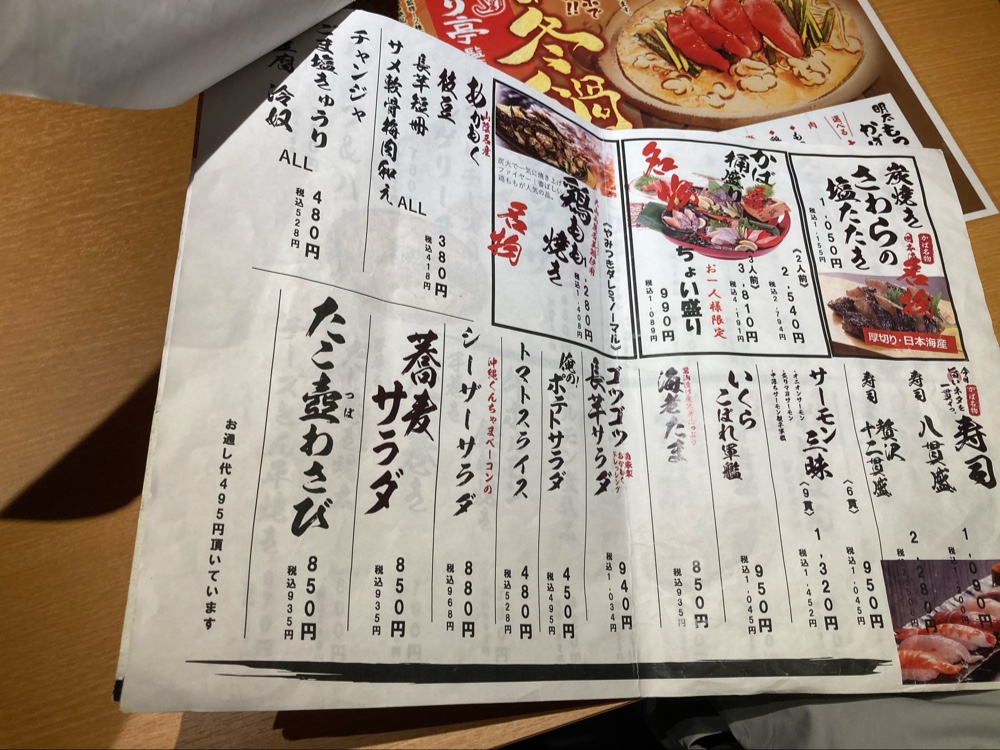 冬鍋
炭焼き
さわらの
塩たたき
かば名物
名物
1,050円
税込1,155円
厚切り・日本海産
かば
桶盛り
名物
(2人前)
2,540円
税込2,794円
(3人前)
3,810円
税込4,191円
お一人様限定
ちょい盛り
990円
税込1,089円
鶏もも
焼き
名物
1,280円
税込1,408円
山陰名産
あかもく
枝豆
長芋短冊
サメ軟骨梅肉和え
ALL
380円
税込418円
チャンジャ
ごま塩きゅうり
冷奴
ALL
480円
税込528円
かば名物
寿司
寿司
八貫盛
寿司
贅沢
十二貫盛
2,280円
サーモン三昧
オニオンサーモン
(6貫)
950円
税込1,045円
(9貫)
1,320円
税込1,452円
いくら
こぼれ軍艦
950円
税込1,045円
海老たま
850円
税込935円
ゴツゴツ
長芋サラダ
自家製
あかもく
ドレッシング
940円
税込1,034円
俺の!
ポテトサラダ
450円
税込495円
トマトスライス
480円
税込528円
沖縄くんちゃまベーコンの
シーザーサラダ
880円
税込968円
蕎麦
サラダ
850円
税込935円
たこ壺わさび
つぼ
850円
税込935円
お通し代495円頂いています